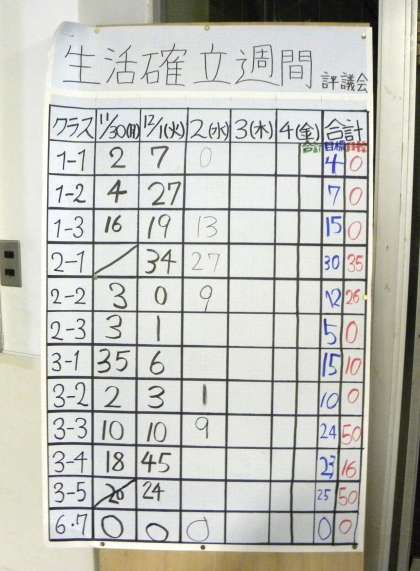 生活確立週間 評議会
クラス 11/30(月) 12/1(火) 2(水) 3(木) 4(金) 合計
合計 目標
1-1 2 7 0 4 0
1-2 4 27 7 0
1-3 16 19 13 15 0
2-1 / 34 27 30 35
2-2 3 0 9 12 26
2-3 3 1 5 0
3-1 35 6 15 10
3-2 2 3 1 10 0
3-3 10 10 9 24 50
3-4 18 45 23 16
3-5 20 24 25 50
6・7 0 0 0 0 0